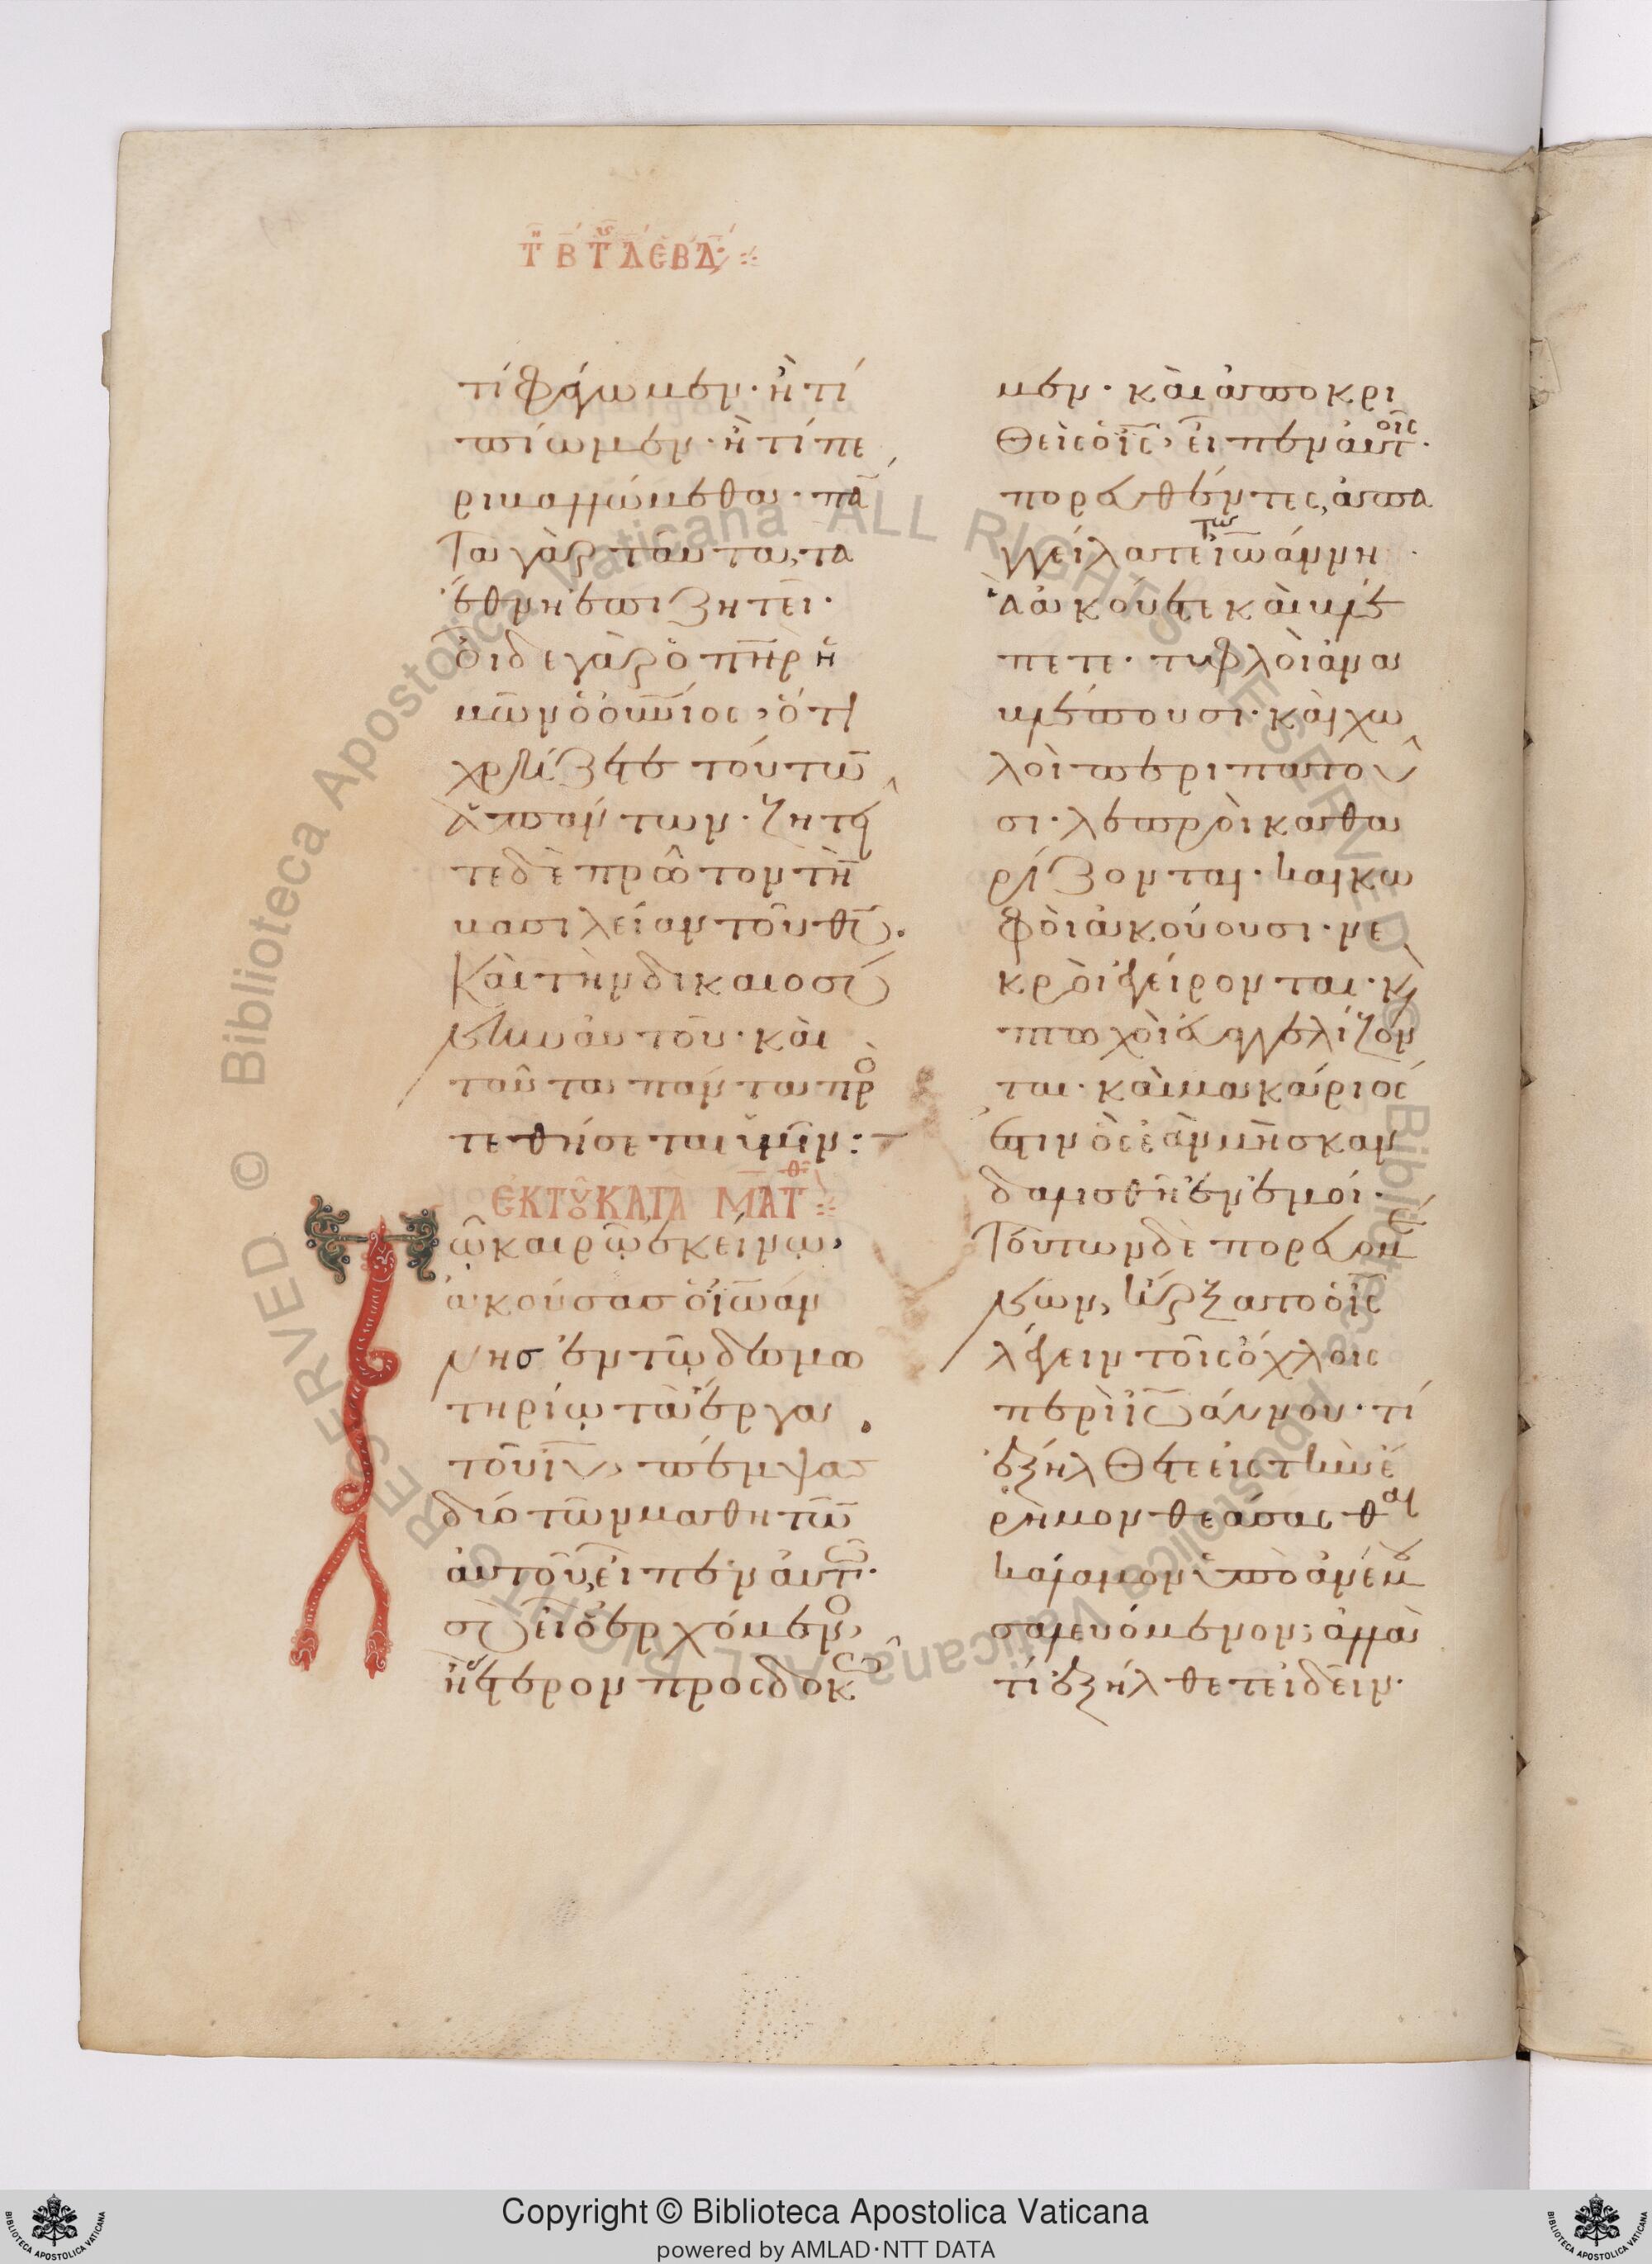 τῇ β τῆς δ ἑβδ
τί φάγωμεν· ἢ τί
πίωμεν· ἢ τί πε
ριβαλλώμεθα· πά
τα γὰρ ταῦτα, τὰ
ἔθνη ἐπιζητεῖ·
οἶδε γὰρ ὁ πηρ ὑ
μῶν ὁ οὐνιος, ὅτι
χρήζετε τούτω
ἁπάντων· ζητεῖ
τε δὲ πρῶτον τὴ
βασιλείαν τοῦ θυ·
καὶ τὴν δικαιοσύ
νην αὐτοῦ· καὶ
ταῦτα πάντα προ
τεθήσεται ὑμῖν:
ἐκ τοῦ κατὰ Ματθ
Τῶ καιρῷ ἐκείνῳ,
ἀκούσας ὁ ἰωάν
νης ἐν τῷ δεσμω
τηρίῳ τὰ ἔργα
τοῦ ιυ, πέμψας
δύο τῶν μαθητῶ
αὐτοῦ, εἶπεν αὐτῶ·
σὺ εἶ ὁ ἐρχόμενο,
ἢ ἕτερον προσδοκῶ
μεν· καὶ ἀποκρι
θεὶς ὁ ις, εἶπεν αὐτοῖς·
πορευθέντες, ἀπα
γγείλατε τῶ ἰωάννη
ἃ ἀκούετε καὶ βλέ
πετε· τυφλοὶ ἀνα
βλέπουσι· καὶ χω
λοὶ περιπατοῦ
σι· λεπροὶ καθα
ρίζονται· καὶ κω
φοὶ ἀκούουσι· νε
κροὶ ἐγείρονται· κ
πτωχοὶ εὐαγγελίζον
ται· καὶ μακάριός
ἐστιν ὃς ἐὰν μὴ σκαν
δαλισθῆ ἐν ἐμοί·
Τούτων δὲ πορευομέ
νων, ἤρξατο ὁ ις
λέγειν τοῖς ὄχλοις
περὶ ἰωάννου· τί
ἐξήλθετε εἰς τὴν ἔ
ρημον θεάσασθαι
κάλαμον ὑπὸ ἀνέμου
σαλευόμενον; ἀλλὰ
τί ἐξήλθετε ἰδεῖν·
© Biblioteca Apostolica Vaticana ALL RIGHTS RESERVED
Copyright © Biblioteca Apostolica Vaticana
powered by AMLAD·NTT DATA
BIBLIOTECA APOSTOLICA VATICANA
BIBLIOTECA APOSTOLICA VATICANA